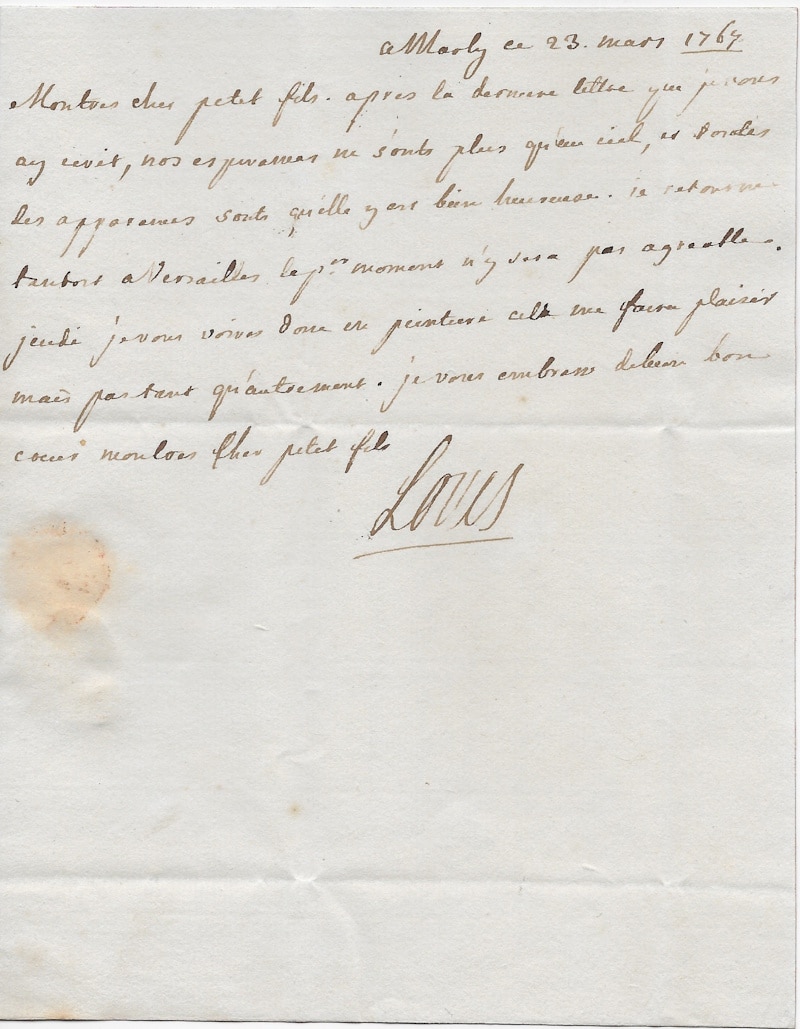 a Marly ce 23. mars 1767
Mon tres cher petit fils. apres la derniere lettre que je vous
ay ecrit, nos esperances ne s'onts plus qu'au ciel, et toutes
les apparances sonts qu'elle y est bien heureuse. je retourne
tantost a Versailles le p.er moment n'y sera pas agreable.
jeudi je vous voires donc en peinture cela me faira plaisir
mais pas tant qu'autrement. je vous embrasse de bien bon
coeur mon tres cher petit fils
Louis